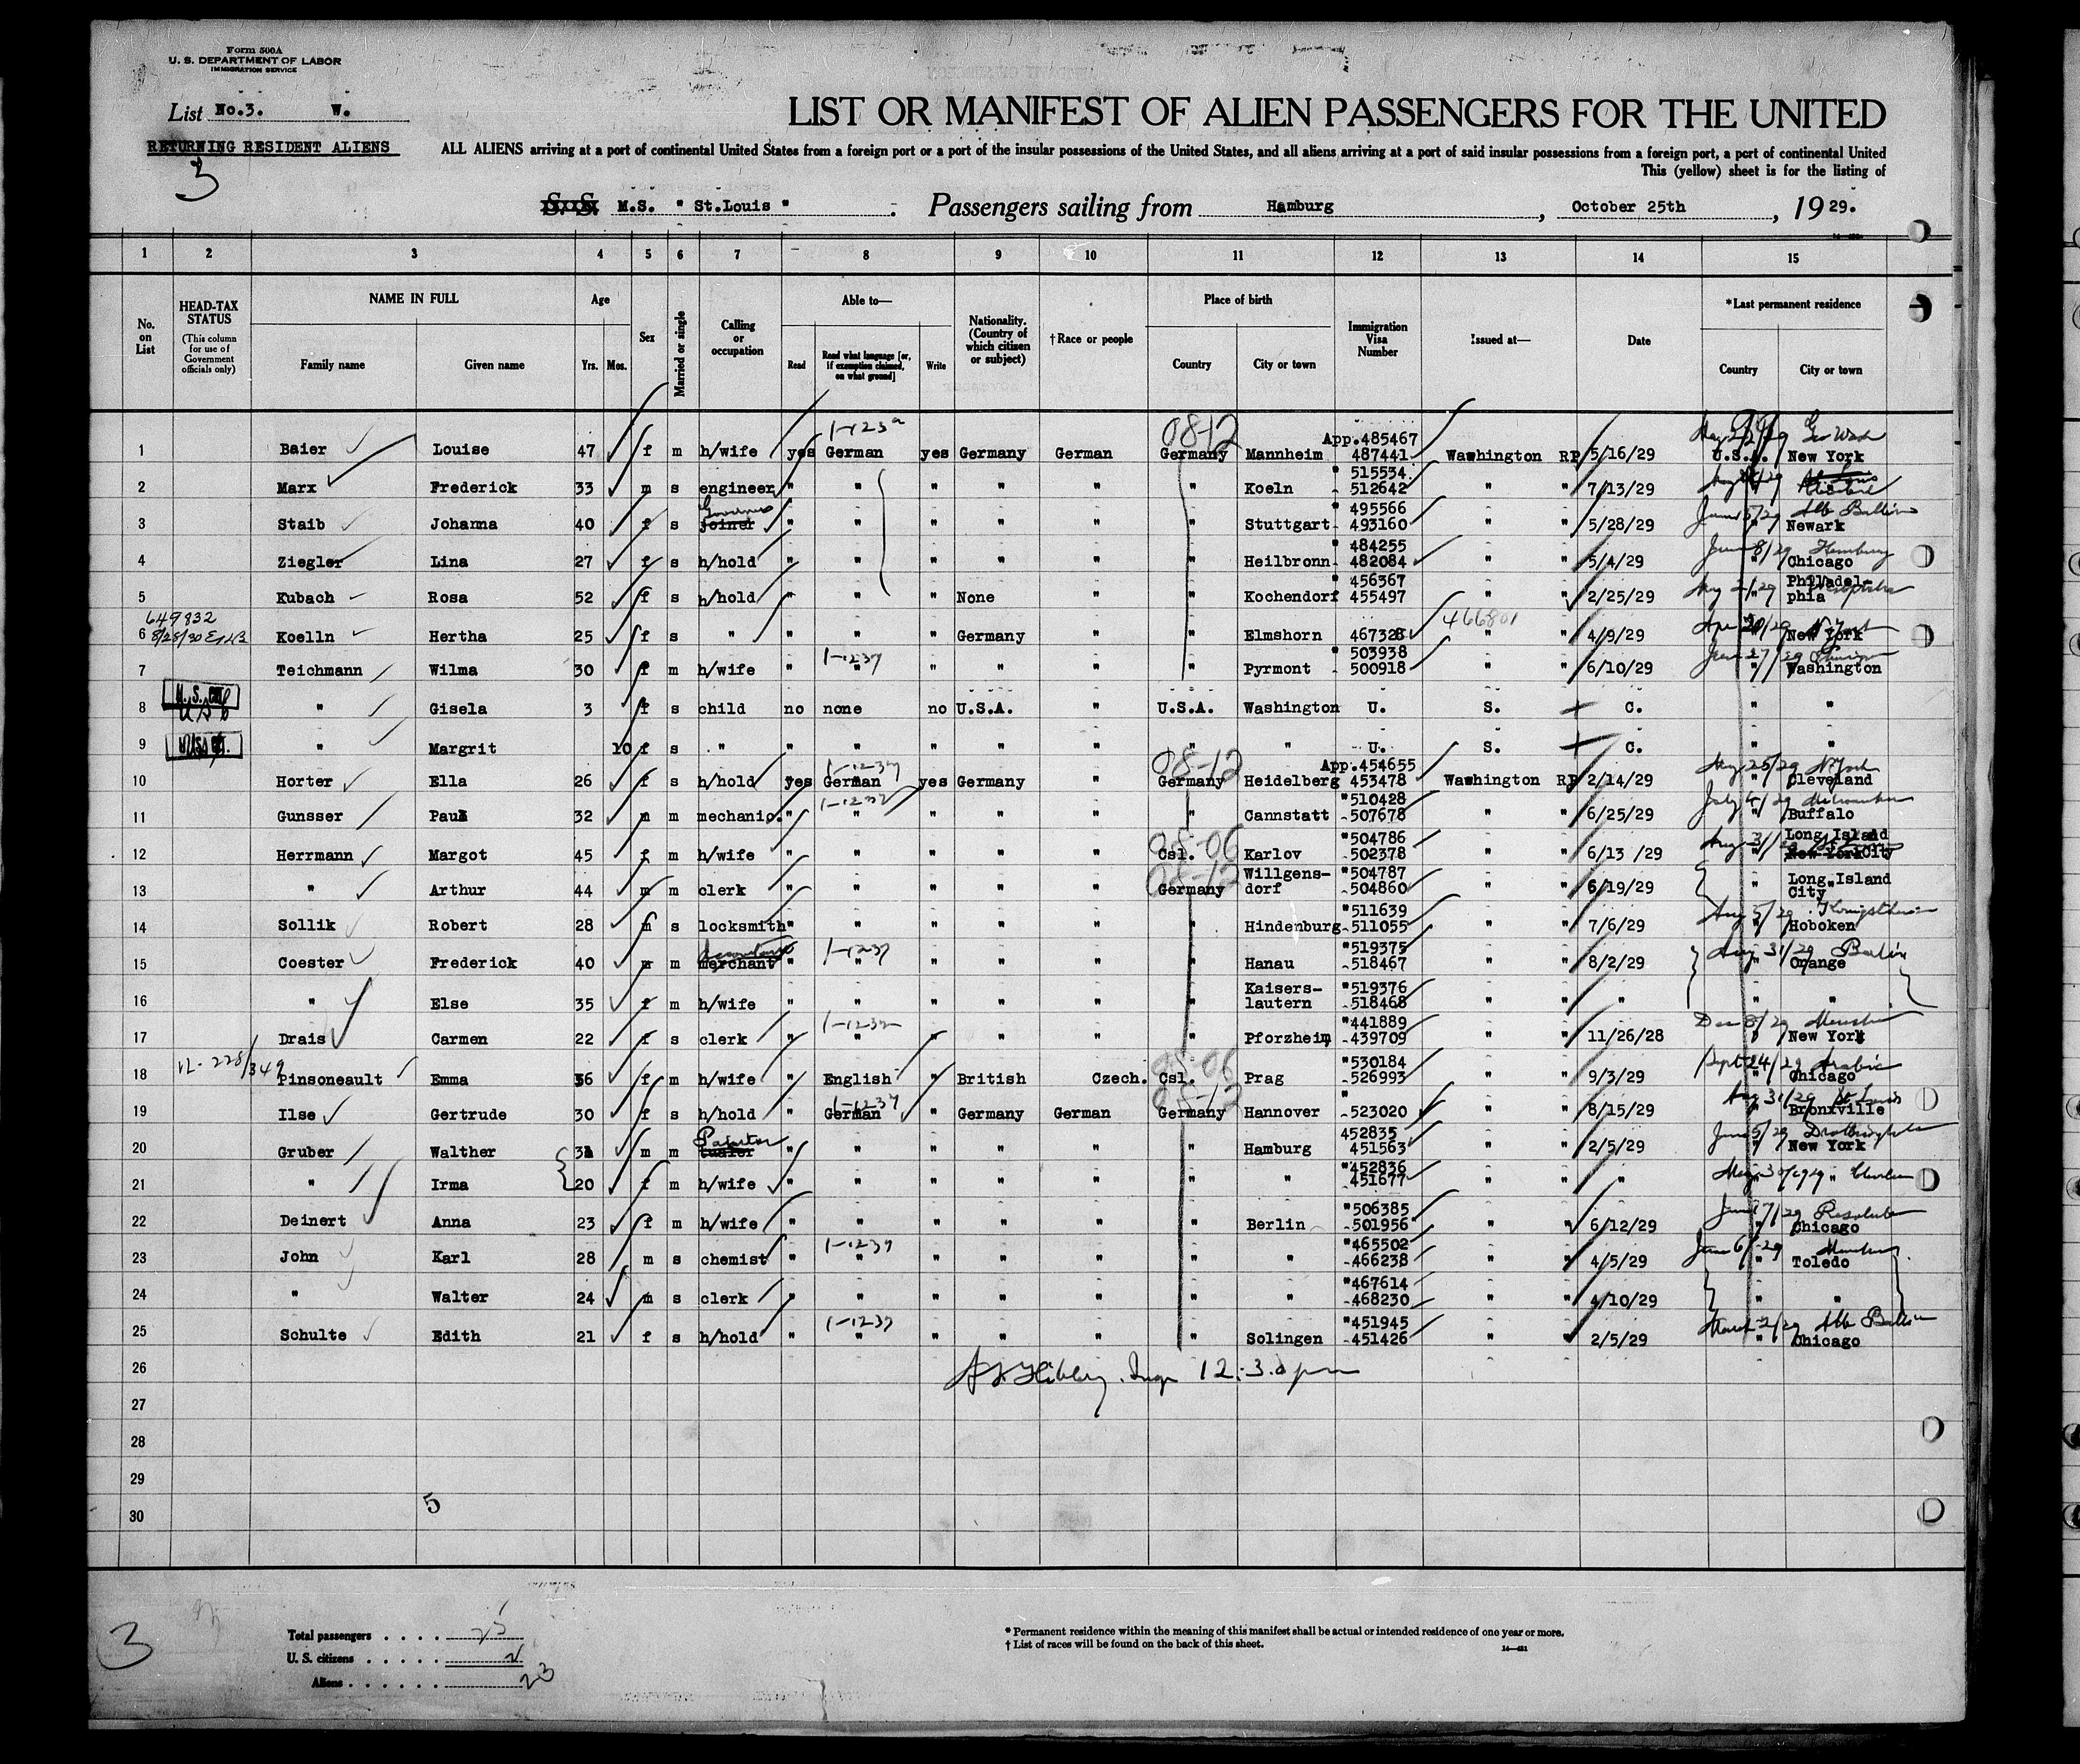 Form 500A
U. S. DEPARTMENT OF LABOR
IMMIGRATION SERVICE
List No.3. W.
RETURNING RESIDENT ALIENS
3
LIST OR MANIFEST OF ALIEN PASSENGERS FOR THE UNITED
ALL ALIENS arriving at a port of continental United States from a foreign port or a port of the insular possessions of the United States, and all aliens arriving at a port of said insular possessions from a foreign port, a port of continental United
This (yellow) sheet is for the listing of
S. S. M.S. " St.Louis " Passengers sailing from Hamburg, October 25th, 1929.
1 2 3 4 5 6 7 8 9 10 11 12 13 14 15
No. on List
HEAD-TAX STATUS (This column for use of Government officials only)
NAME IN FULL Family name Given name
Age Yrs. Mos.
Sex
Married or single
Calling or occupation
Able to— Read Read what language [or, if exemption claimed, on what ground] Write
Nationality. (Country of which citizen or subject)
†Race or people
Place of birth Country City or town
Immigration Visa Number
Issued at—
Date
*Last permanent residence Country City or town
1-1237 08-12
1 Baier Louise 47 f m h/wife yes German yes Germany German Germany Mannheim App.485467 487441 Washington RP 5/16/29 U.S.A. New York
2 Marx Frederick 33 m s engineer " " " " " " Koeln " 515534 512642 " " 7/13/29 "
3 Staib Johanna 40 f s joiner Governess " " " " " " Stuttgart " 495566 493160 " " 5/28/29 June 5/29 Alb Ballin " Newark
4 Ziegler Lina 27 f s h/hold " " " " " " Heilbronn " 484255 482084 " " 5/4/29 June 8/29 Hamburg " Chicago
5 Kubach Rosa 52 f s h/hold " " " None " " Kochendorf " 456367 455497 " " 2/25/29 " Philadelphia
649832
6 Koelln Hertha 25 f s " " " " Germany " " Elmshorn 467328 466801 " " 4/9/29 " New York
7 Teichmann Wilma 30 f m h/wife " 1-1237 " " " " " Pyrmont " 503938 500918 " " 6/10/29 " Washington
8 " Gisela 3 f s child no none no U.S.A. " U.S.A. Washington U. S. C. " "
9 " Margrit 10 f s " " " " " " " " U. S. C. " "
1-1237 08-12
10 Horter Ella 26 f s h/hold yes German yes Germany " Germany Heidelberg App.454655 453478 Washington RP 2/14/29 " Cleveland
11 Gunsser Paul 32 m m mechanic. " " " " " " Cannstatt "510428 507678 " " 6/25/29 " Buffalo
08-06
12 Herrmann Margot 45 f m h/wife " " " " " Csl. Karlov "504786 502378 " " 6/13 /29 " Long Island City New York
08-12
13 " Arthur 44 m m clerk " " " " " Germany Willgensdorf "504787 504860 " " 6/19/29 " Long Island City"
14 Sollik Robert 28 m s locksmith " " " " " " Hindenburg "511639 511055 " " 7/6/29 " Hoboken
15 Coester Frederick 40 m m merchant " 1-1237 " " " " " Hanau "519375 518467 " " 8/2/29 Aug 31/29 " Orange
16 " Else 35 f m h/wife " " " " " " Kaiserslautern "519376 518468 " " " " "
17 Drais Carmen 22 f s clerk " " " " " " Pforzheim "441889 439709 " " 11/26/28 " New York
08-06
18 Pinsoneault Emma 36 f m h/wife " English " British Czech. Csl. Prag "530184 526993 " " 9/3/29 Sept 24/29 Arabic " Chicago
1-1237 08-12
19 Ilse Gertrude 30 f s h/hold " German " Germany German Germany Hannover " 523020 " " 8/15/29 Aug 31/29 St. Louis " Bronxville
20 Gruber Walther m m " " " " " " Hamburg 452835 451563 " " 2/5/29 " New York
21 " Irma 20 f m h/wife " " " " " " " "452836 451677 " " " " "
22 Deinert Anna 23 f m h/wife " " " " " " Berlin "506385 501956 " " 6/12/29 Resolute " Chicago
23 John Karl 28 m s chemist " 1-1237 " " " " " " "465502 466238 " " 4/5/29 June 6/29 " Toledo
24 " Walter 24 m s clerk " " " " " " " "467614 468230 " " 4/10/29 " "
25 Schulte Edith 21 f s h/hold " 1-1237 " " " " " Solingen "451945 451426 " " 2/5/29 March 2/29 Alb Ballin " Chicago
26 12:30 pm
27
28
29
30 5
3
Total passengers . . . . 25
U. S. citizens . . . . . 2
Aliens . . . . . . 23
* Permanent residence within the meaning of this manifest shall be actual or intended residence of one year or more.
† List of races will be found on the back of this sheet.